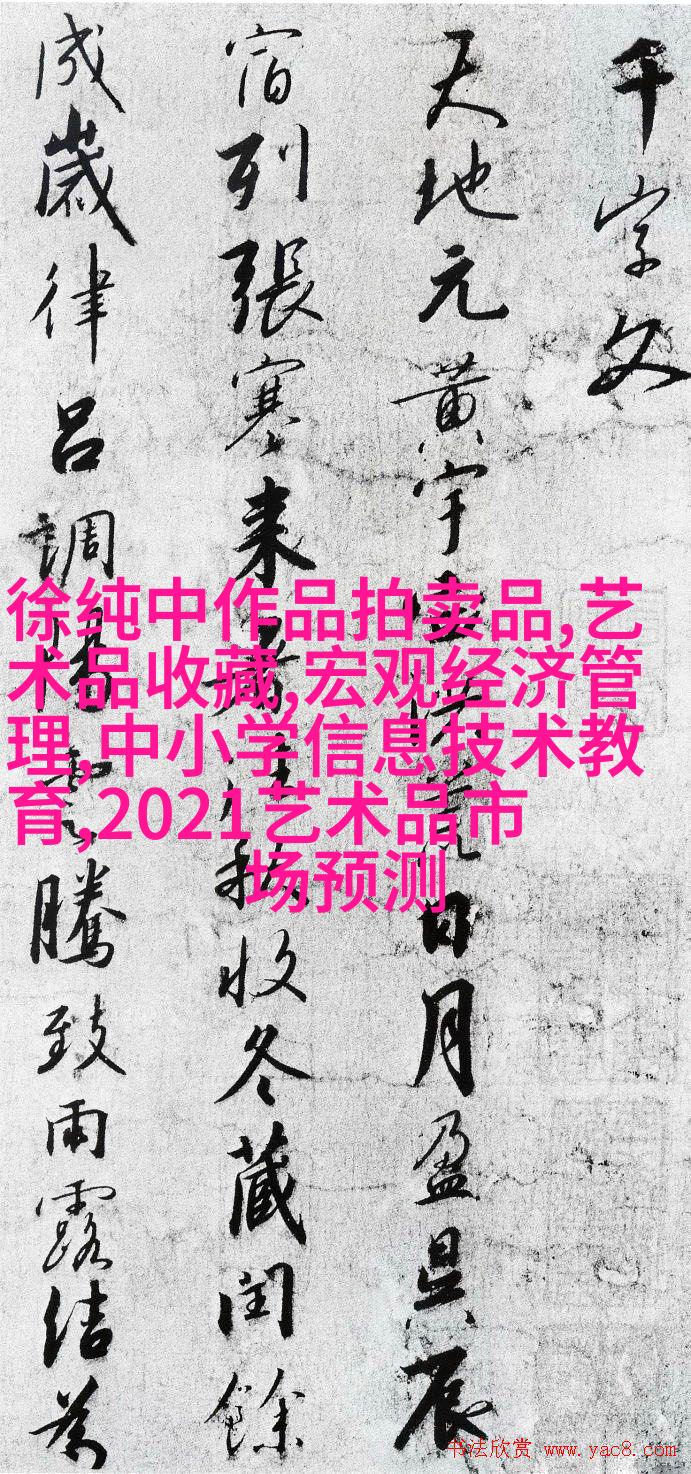 千字文
天地元黄宇宙洪荒日月盈昃辰
宿列張寒来暑往秋收冬藏閏餘
成歲律呂調陽雲騰致雨露結為
徐纯中作品拍卖品,艺
术品收藏,宏观经济管
理,中小学信息技术教
育,2021艺术品市
场预测
书法欣赏 www.yac8.com